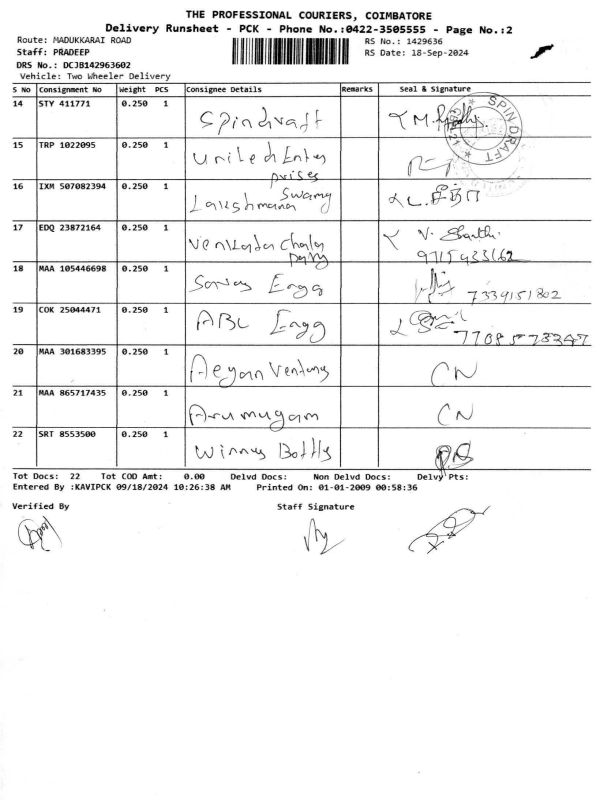 THE PROFESSIONAL COURIERS, COIMBATORE
Delivery Runsheet - PCK - Phone No.:0422-3505555 - Page No.:2
Route: MADUKKARAI ROAD RS No.: 1429636
Staff: PRADEEP RS Date: 18-Sep-2024
DRS No.: DCJB142963602
Vehicle: Two Wheeler Delivery
S No Consignment No Weight PCS Consignee Details Remarks Seal & Signature
14 STY 411771 0.250 1 Spindraft SPINDRAFT
15 TRP 1022095 0.250 1 United Enter
prises
16 IXM 507082394 0.250 1 Lakshmana Swamy
17 EDQ 23872164 0.250 1 Venkatachala
pathy V.
18 MAA 105446698 0.250 1 Engg 7339151802
19 COK 25044471 0.250 1 ABC Engg
20 MAA 301683395 0.250 1 CN
21 MAA 865717435 0.250 1 Arumugam CN
22 SRT 8553500 0.250 1
Tot Docs: 22 Tot COD Amt: 0.00 Delvd Docs: Non Delvd Docs: Delvy Pts:
Entered By :KAVIPCK 09/18/2024 10:26:38 AM Printed On: 01-01-2009 00:58:36
Verified By Staff Signature